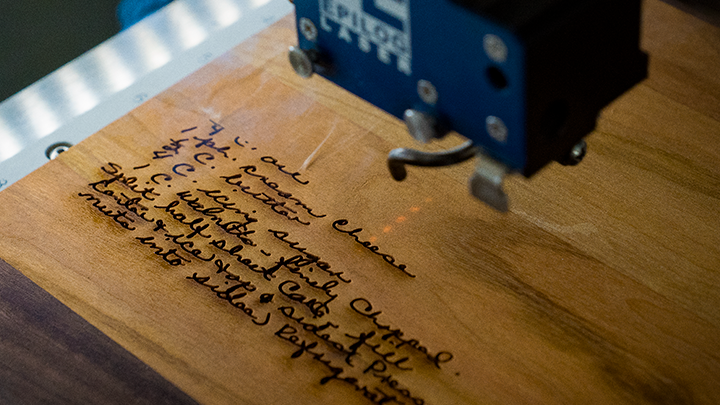 EPILOG
LASER
1 ph. cream cheese
½ C. butter
4 C. icing sugar
1 C. walnuts - finely chopped.
Split half sheet Cake fill
& ice top & sides. Press
nuts into sides. Refrigerate